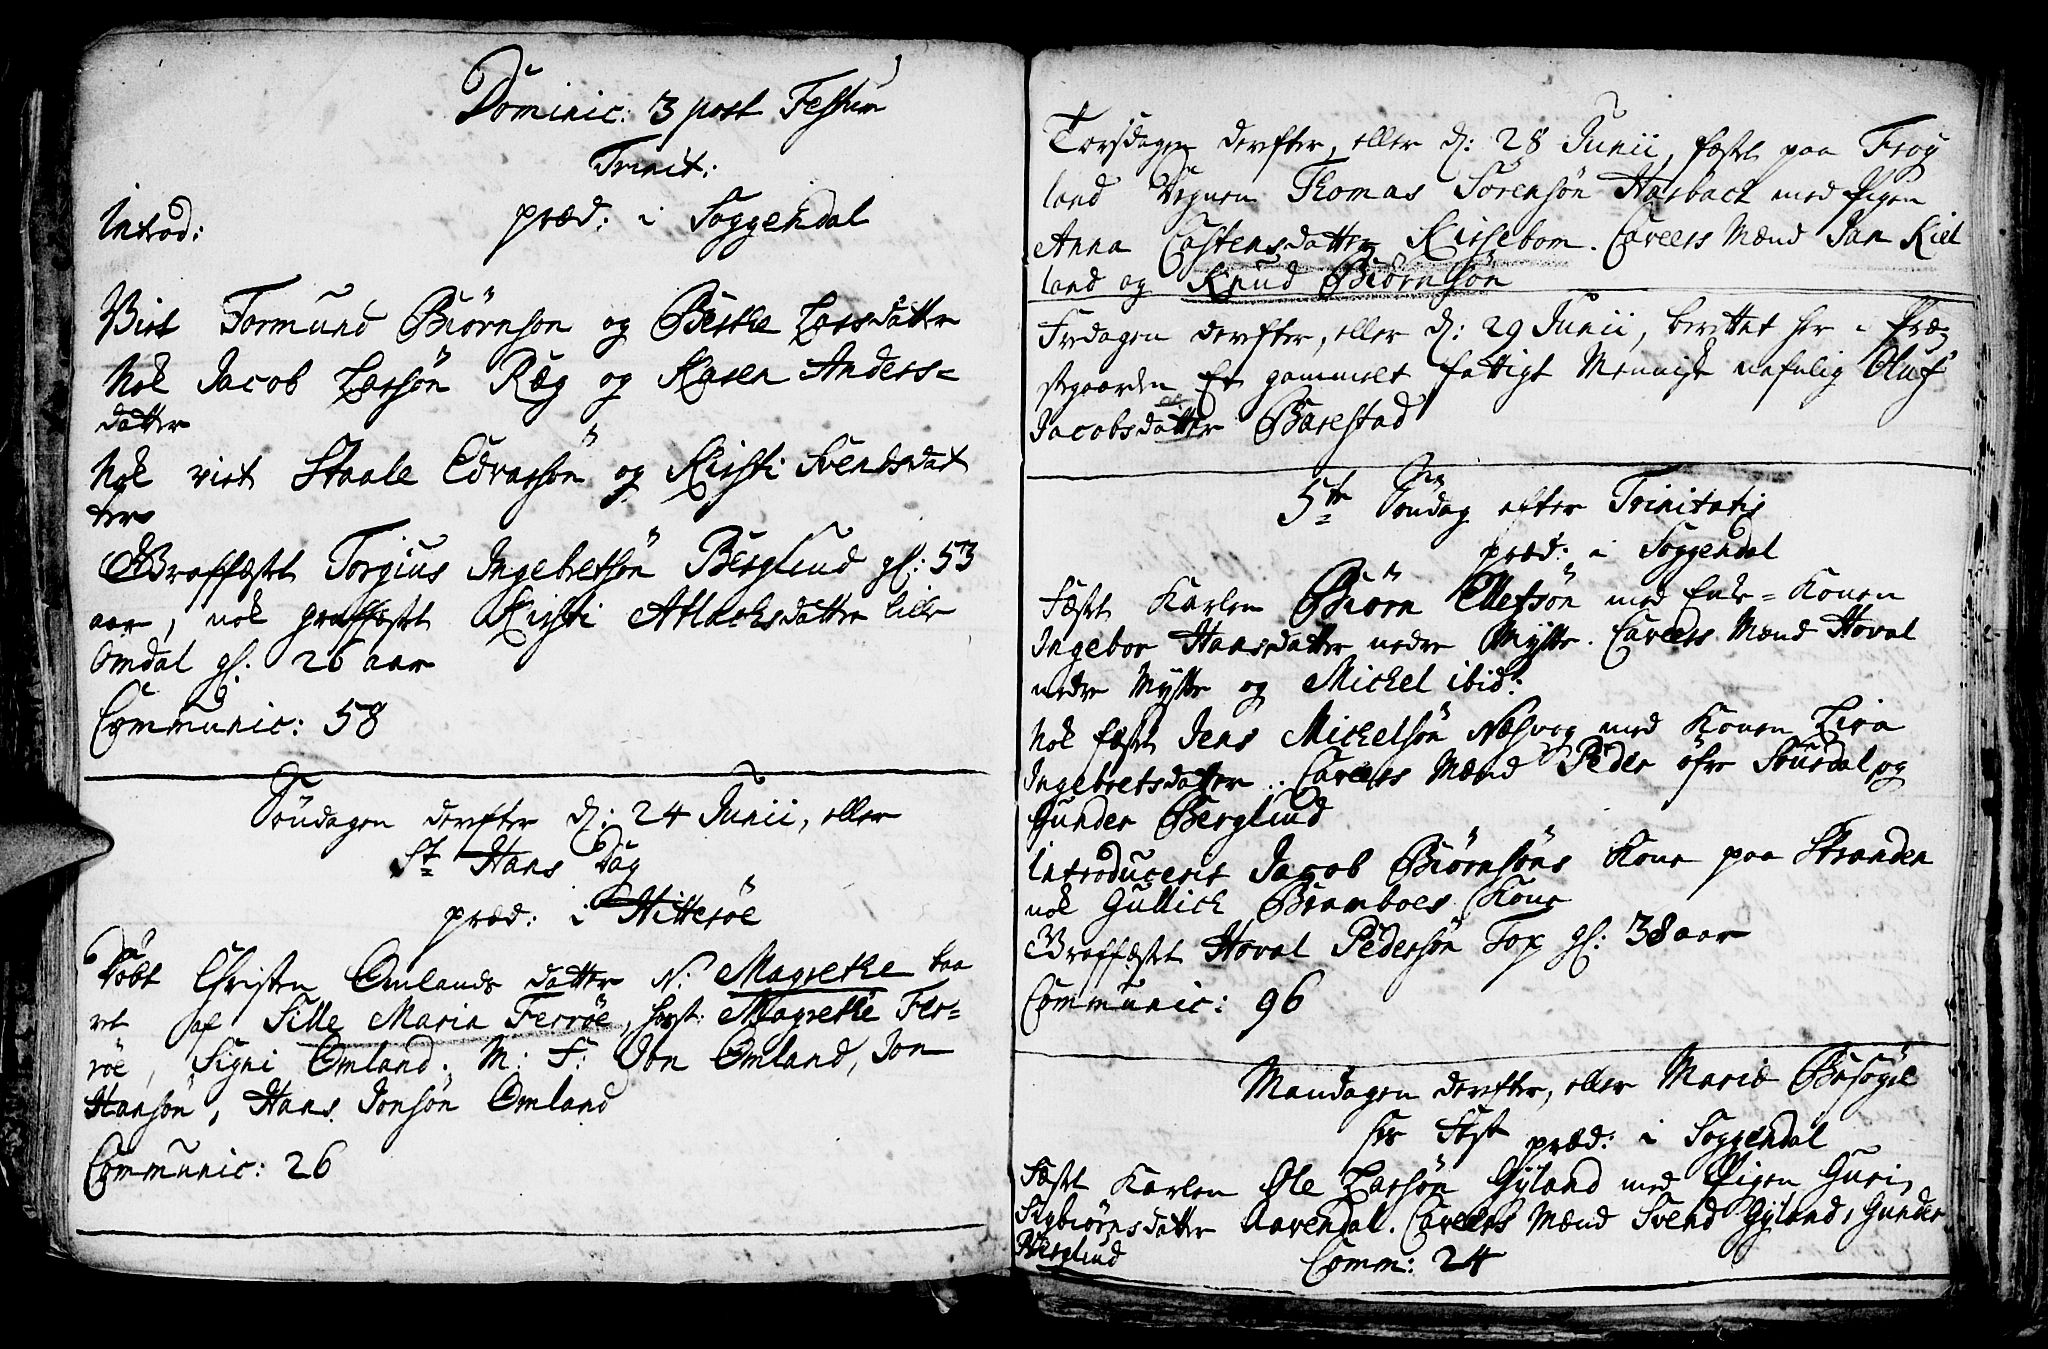 Dominic: 3 post Festum
Trinit:
præd: i Soggendal
Introd:
Viet Tormund Biørnsøn og Birthe Larsdatter
Nok Jacob Larsøn Ræg og Karen Anders=
datter
Nok viet Staale Edvarsøn og Kirsti Svendsdat
ter
Graffæstet Torgius Ingebretsøn Berglund gl: 53
aar, nok graffæstet Kirsti Atlacksdatter lille
Omdal gl. 26 aar
Communic: 58
Søndagen derefter d: 24 Junii, eller
St Hans Dag
præd: i Hitterøe
Døbt Christen Omlands datter N: Magrethe baa
ret af Sille Maria Ferrøe, hosst: Magrethe Fer=
røe, Signi Omland. M: F: Jon Omland, Jon
Hansøn, Hans Jonsøn Omland
Communic: 26
Torsdagen derefter, eller d: 28 Junii, fæstet paa Frøy
land Degnen Thomas Sørensøn Harboek med Pigen
Anna Castensdatter Kirsebom. Caveers Mænd Jan Kiel
land og Knud Biørnsøn
Fredagen derefter, eller d: 29 Junii, berettet her i Præ=
stegaarden Et gammelt fattigt Menniske nafnlig Oluf
Jacobsdatter Barestad
5te Søndag efter Trinitatis
præd: i Soggendal
Fæstet Karlen Biørn Ellefsøn med Enke=Konen
Ingebor Hansdatter nedre Mysse. Caveers Mænd Hoval
nedre Mysse og Mickel ibid:
Nok fæstet Jens Mickelsøn Næsvog med Konen Zira
Ingebretsdatter. Caveers Mænd Peder øfre Skusdal og
Gunder Berglund
Introducerit Jacob Biørnsøns Kone paa Stranden
nok Gullich Bramboes Kone
Graffæstet Hoval Pedersøn Top gl: 38 aar
Communic: 96
Mandagen derefter, eller Mariæ Besøgel
ses Fest præd: i Soggendal
Fæstet Karlen Ole Larsøn Gyland med Pigen Guri
Sigbiørnsdatter Aarendal. Caveers Mænd Svend Gyland, Gunder
Berglund
Comm: 24